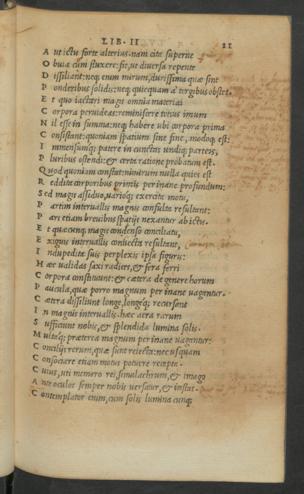 LIB. II 21
A ut ictu forte alterius. nam cita superne
O bvia cum fluxere: fit, ut diversa repente
D issiliant: neq; enim mirum, durissima quæ sint
P onderibus solidis: neq; quicquam a tergibus obstet.
E t quo iactari magis omnia materiai
C orpora pervideas: reminiscere totius imum
N il esse in summa: neq; habere ubi corpora prima
C onsistant: quoniam spatium sine fine, modoq; est:
I mmensumq; patere in cunctas undiq; parteis,
P luribus ostendi: & certa ratione probatum est.
Q uod quoniam constat: nimirum nulla quies est
R eddita corporibus primis per inane profundum:
S ed magis assiduo, varioq; exercita motu,
P artim intervallis magnis consulta resultant:
P ars etiam brevibus spatijs nexantur ab ictu.
E t quæcunq; magis condenso conciliatu,
E xiguis intervallis coniecta resultant,
I ndupedita suis perplexis ipsa figuris:
H æc validas saxi radices, & fera ferri
C orpora constituunt: & cætera de genere horum
P aucula, quæ porro magnum per inane vagantur.
C ætera dissiliunt longe, longeq; recursant
I n magnis intervallis. hæc aera rarum
S ufficiunt nobis, & splendida lumina solis.
M ultaq; præterea magnum per inane vagantur:
C oncilijs rerum, quæ sunt reiecta: nec usquam
C onsociare etiam motus potuere recepta.
C uius, uti memoro rei, simulachrum, & imago
A nte oculos semper nobis versatur, & instat.
C ontemplator enim, cum solis lumina cunq;